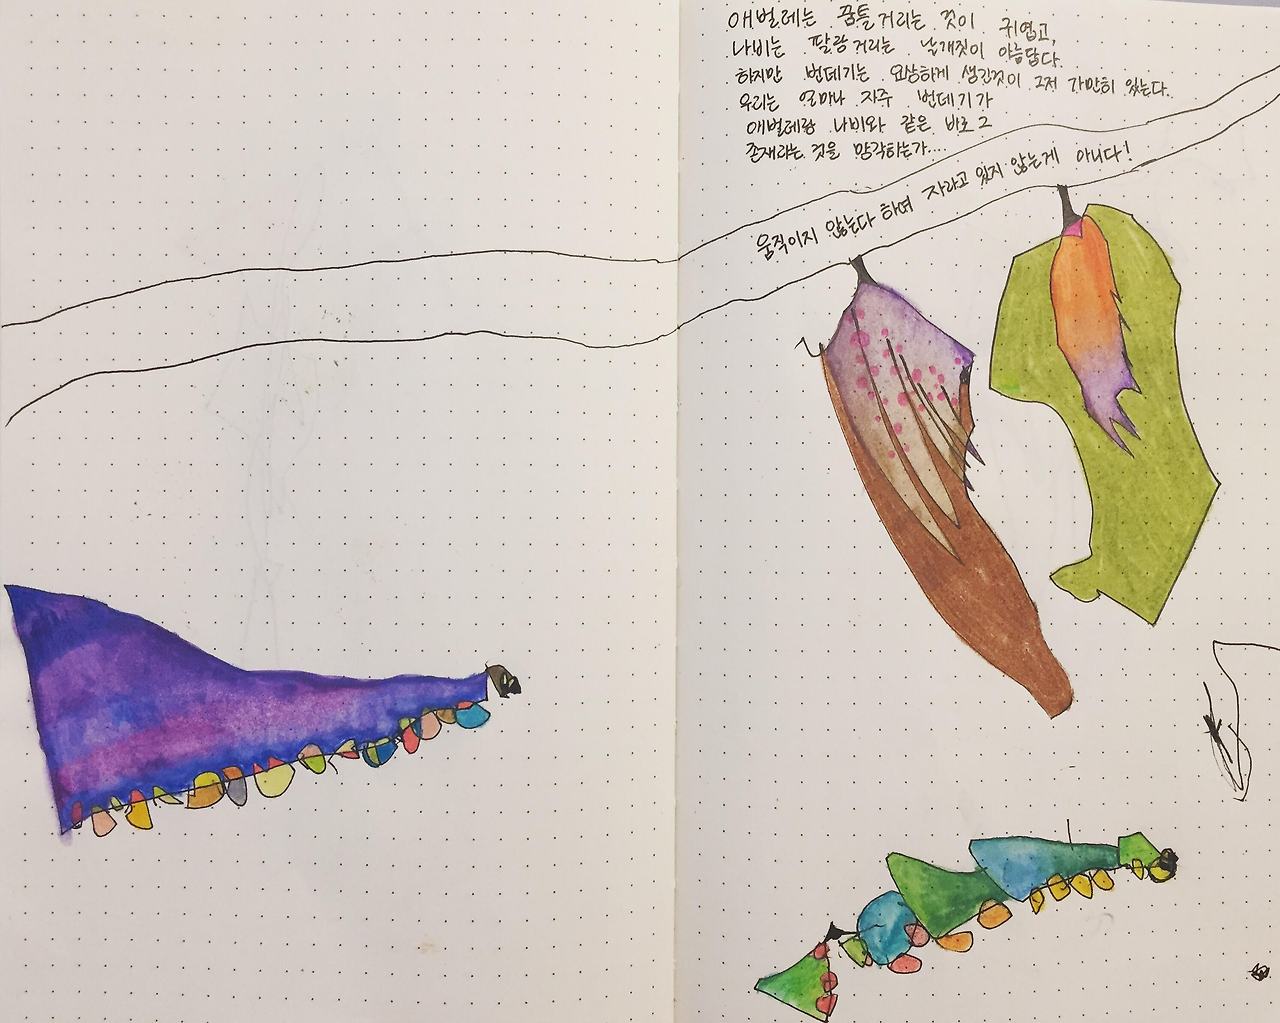 애벌레는 꿈틀거리는 것이 귀엽고,
나비는 팔랑거리는 날개짓이 아름답다.
하지만 번데기는 요상하게 생긴것이 그저 가만히 있는다.
우리는 얼마나 자주 번데기가
애벌레랑 나비와 같은 바로 그
존재라는 것을 망각하는가....
움직이지 않는다 하며 자라고 있지 않는게 아니다!